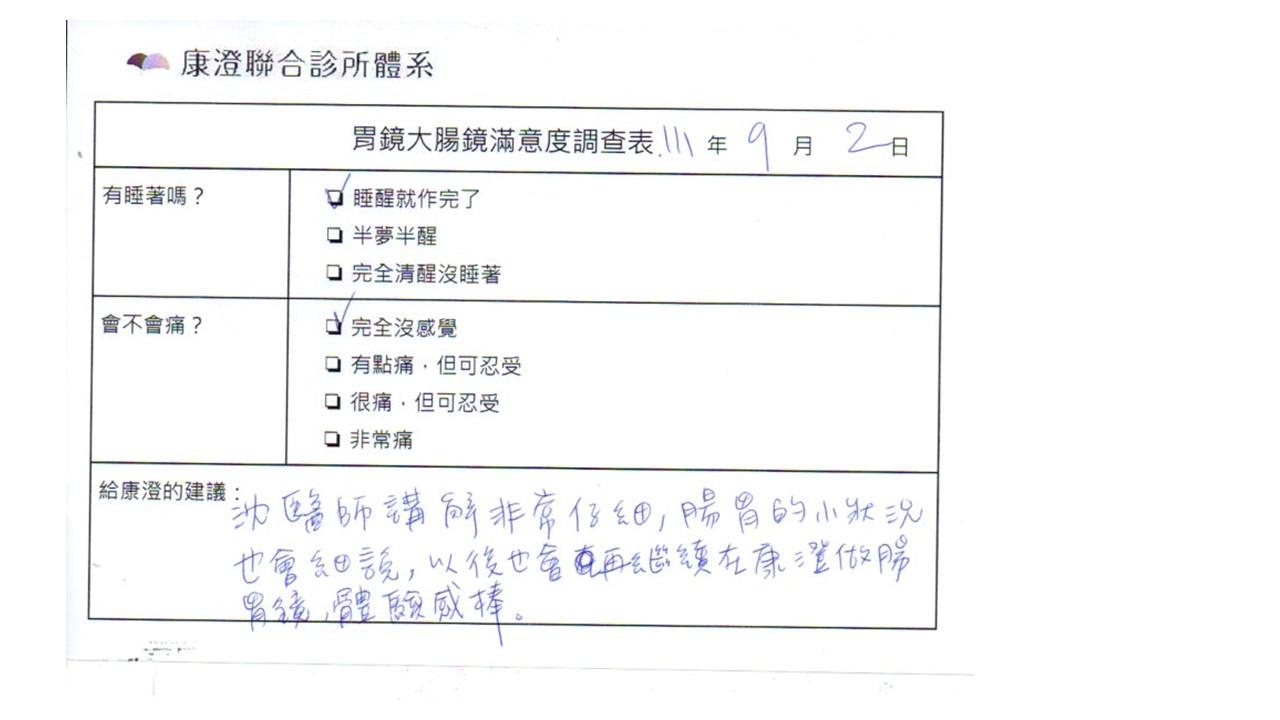 康澄聯合診所體系
胃鏡大腸鏡滿意度調查表.111年9月2日
有睡著嗎？
睡醒就作完了
半夢半醒
完全清醒沒睡著
會不會痛？
完全沒感覺
有點痛，但可忍受
很痛，但可忍受
非常痛
給康澄的建議：
沈醫師講解非常仔細, 腸胃的小狀況
也會細說, 以後也會再繼續在康澄做腸
胃鏡, 體驗感棒。